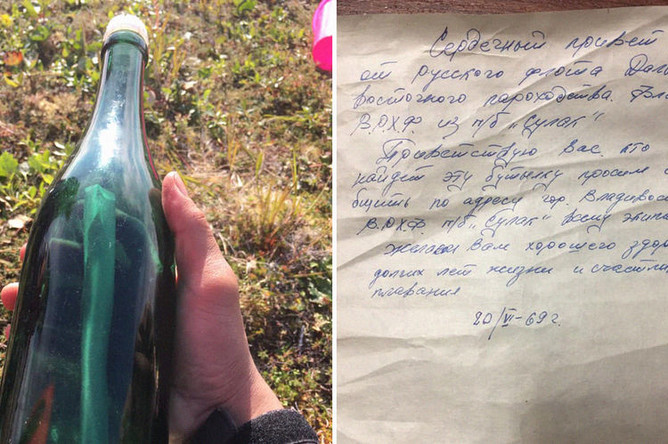 Сердечный привет
от русского флота Даль
восточного пароходства.
В.Р.Х.Ф. из п/б „Сулак“
Приветствую Вас кто
найдет эту бутылку просим с
бщить по адресу гор. Владивос
В.Р.Х.Ф. п/б „Сулак“ всему экипа
желаем Вам хорошего здоро
долгих лет жизни и счастли
плавания
20/VI-69г.